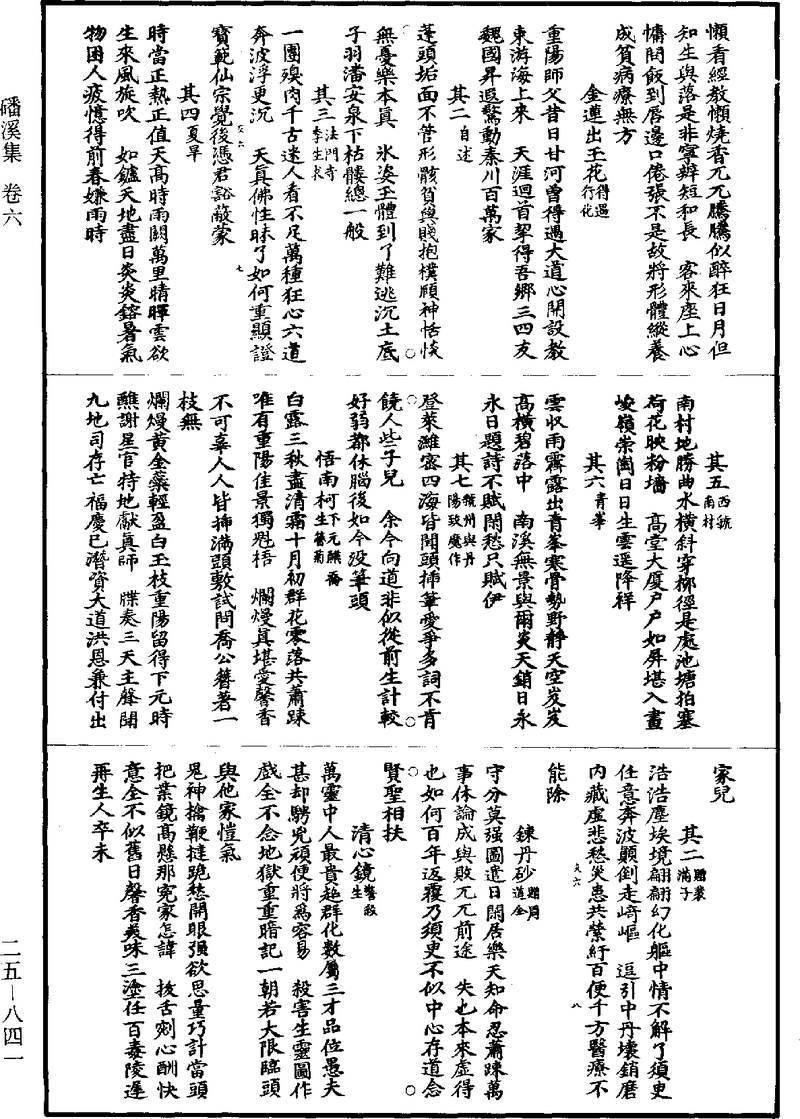 磻溪集 卷六
懶看經教懶燒香兀兀騰騰似醉狂日月但
知生與落是非寧辨短和長 客來座上心
慵問飯到唇邊口倦張不是故將形體縱養
成貧病療無方
金蓮出玉花得遇行化
重陽師父昔日甘河曾得遇大道心開設教
東游海上來 天涯迴首挈得吾鄉三四友
魏國昇遐驚動秦川百萬家
其二自述
蓬頭垢面不管形骸貧與賤抱樸頤神恬惔
無憂樂本真 氷姿玉體到了難逃沉土底
子羽潘安泉下枯髏總一般
其三法門寺李生求
一團臭肉千古迷人看不足萬種狂心六道
奔波浮更沉 天真佛性昧了如何重顯證
寶範仙宗覺後憑君豁敵蒙
其四夏旱
時當正熱正值天高時雨闕萬里晴暉雲欲
生來風旋吹 如鑪天地盡日炎炎鎔暑氣
物困人疲憶得前春嫌雨時
其五西虢南村
南村地勝曲水橫斜穿柳徑是處池塘拍塞
荷花映粉墻 高堂大厦戶戶如屏堪入畫
峻嶺崇崗日日生雲選降祥
其六青峯
雲收雨霽露出青峯寒骨勢野静天空岌岌
高橫碧落中 南溪無景與爾炎天銷日永
永日題詩不賦閑愁只賦伊
其七虢州與丹陽攻魔作
登萊濰密四海皆聞頭揷筆愛爭多詞不肯
饒人些子兒 余今向道非似從前生計較
好弱都休腦後如今没筆頭
悟南柯下元醮喬生簪菊
白露三秋盡清霜十月初群花零落共蕭踈
唯有重陽佳景獨魁梧 爛熳真堪愛馨香
不可辜人人皆揷滿頭敷試問喬公簪著一
枝無
爛熳黄金蘂輕盈白玉枝重陽留得下元時
醮謝星官特地獻真師 牒奏三天主聲聞
九地司存亡福慶已潛資大道洪恩兼付出
家兒
其二贈裴滿子
浩浩塵埃境翩翩幻化軀中情不解了須臾
任意奔波顛倒走﨑嶇 逗引中丹壞銷磨
内藏虛悲愁災患共縈紆百便千方醫療不
能除
鍊丹砂贈周道全
守分莫强圖遣日閑居樂天知命忍蕭踈萬
事休論成與敗兀兀前途 失也本來虛得
也如何百年返覆乃須臾不似中心存道念
賢聖相扶
清心鏡警殺生
萬靈中人最貴超群化數屬三才品位愚夫
甚却騁兇頑便將爲容易 殺害生靈圖作
戲全不念地獄重重暗記一朝若大限臨頭
與他家愷氣
鬼神搶鞭撻跪愁開眼强欲思量巧計當頭
把業鏡高懸那宽家怎諱 拔舌剜心酬快
意全不似舊日馨香美味三塗任百毒陵遲
再生人卒未
二五—八四一